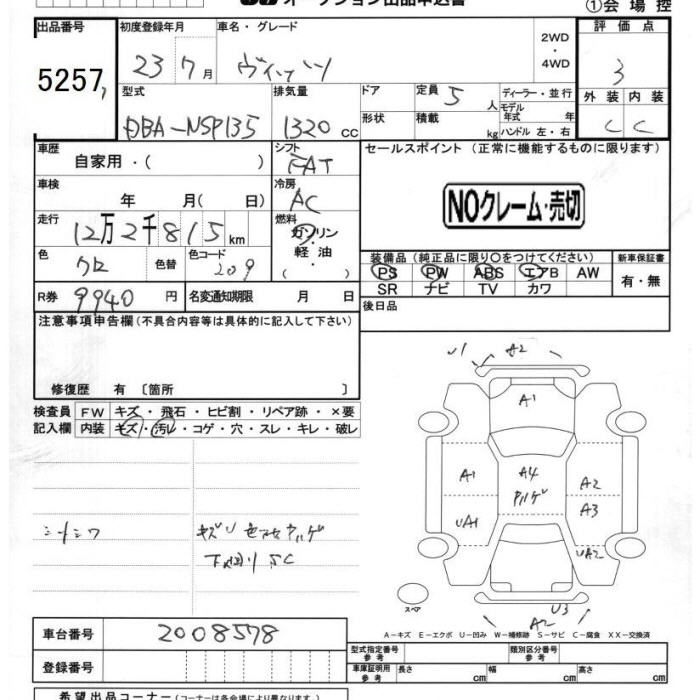 オークション出品申込書
①会場控
出品番号
5257
初度登録年月
23 7月
車名・グレード
ヴィッツ
2WD
・
4WD
評価点
3
外装 内装
C C
型式
DBA-NSP135
排気量
1320 cc
ドア
形状
定員 5 人
積載 kg
ディーラー・並行
モデル年式 年
ハンドル 左・右
車歴
自家用・( )
シフト
FAT
セールスポイント(正常に機能するものに限ります)
NOクレーム・売切
車検
年 月( 日)
冷房
AC
走行
12万2千815km
燃料
ガソリン
・
軽油
( )
色
クロ
色替
色コード
209
装備品(純正品に限り〇をつけてください)
PS PW ABS エアB AW
SR ナビ TV カワ
新車保証書
有・無
R券 9940 円
名変通知期限 月 日
後日品
注意事項申告欄(不具合内容等は具体的に記入して下さい)
修復歴 有 〔箇所 〕
検査員
記入欄
FW キズ・飛石・ヒビ割・リペア跡・×要
内装 キズ・汚レ・コゲ・穴・スレ・キレ・破レ
シートシワ
キズU 色アセ ハゲ
下回り SC
U1 A2
A1
A1 A4 A2
ハゲ
UA1 A3
UA2
U3
A2
スペア
A-キズ E-エクボ U-凹み W-補修跡 S-サビ C-腐食 XX-交換済
車台番号 2008578
登録番号
型式指定番号
参考
類別区分番号
参考
車庫証明用
参考
長さ cm 幅 cm 高さ cm
希望出品コーナー(コーナーは各会場により異なります。)